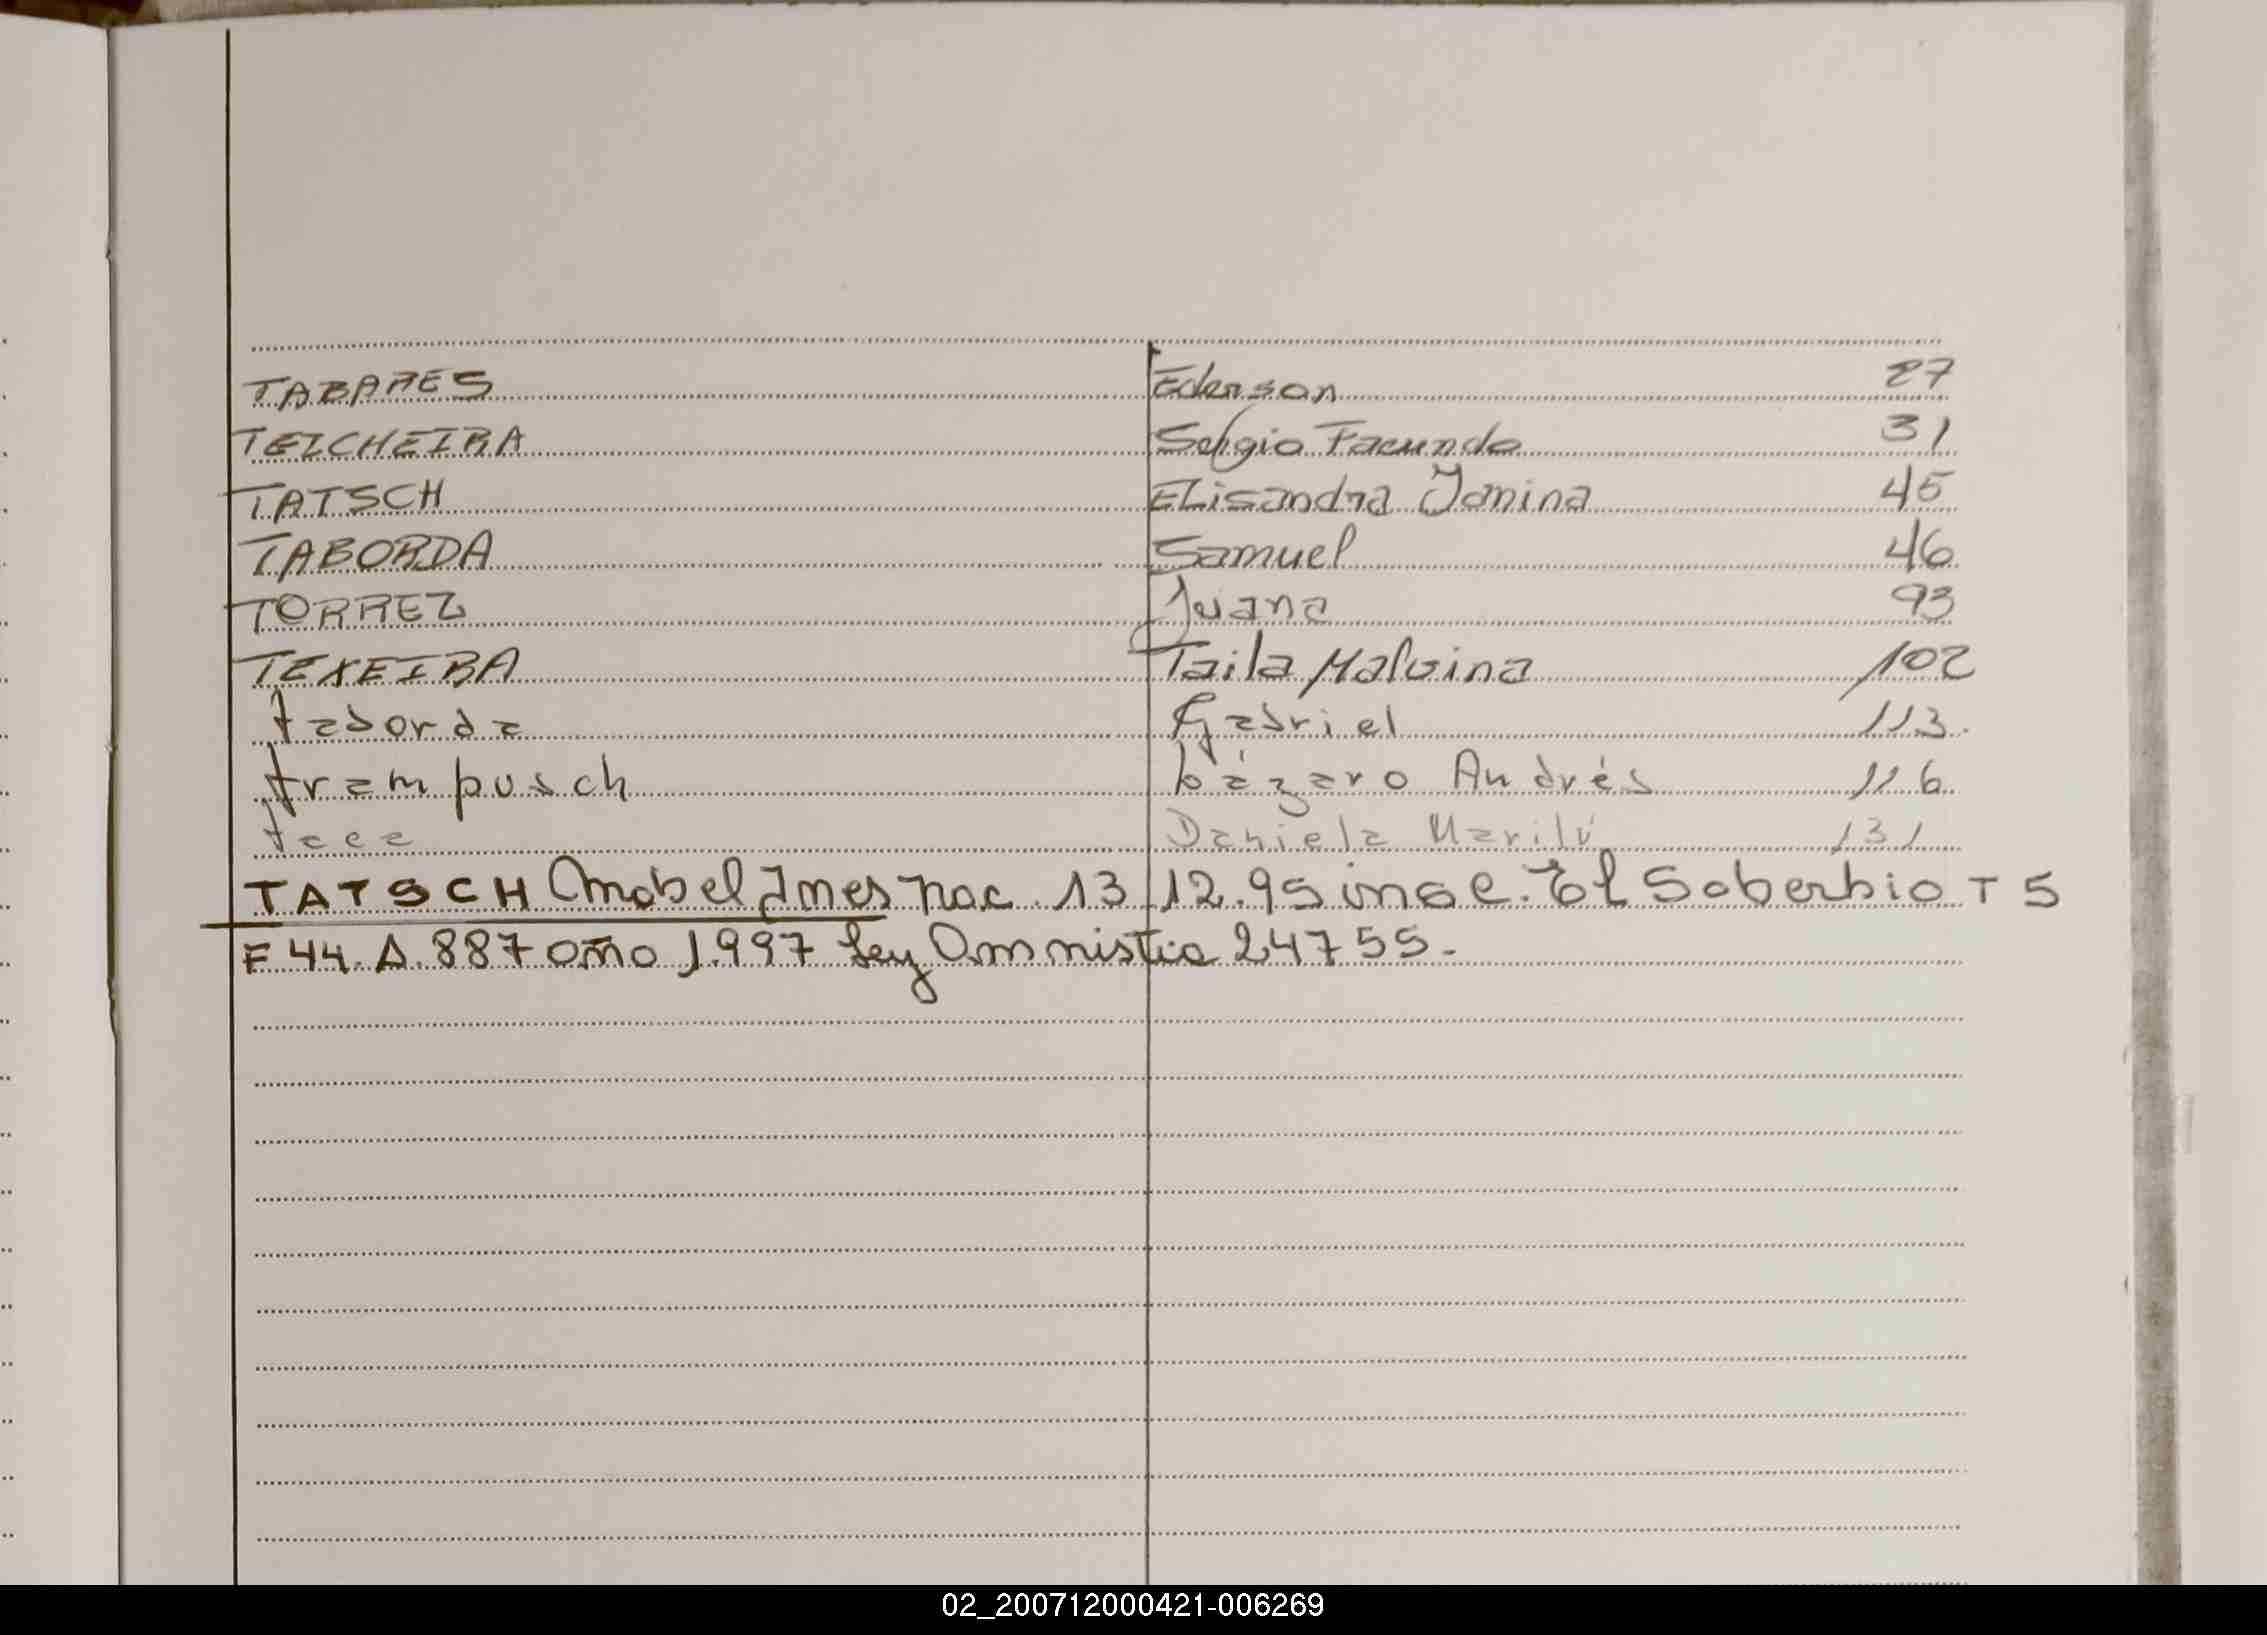 TABARES Ederson 27
TEICHEIRA Sergio Facundo 31
TATSCH Elisandra Janina 45
TABORDA Samuel 46
TORREZ Juana 93
TEXEIRA Taila Malvina 102
Taborda Gabriel 113.
Trampusch Lázaro Andrés 116
Daniela Marilú 131
TATSCH Mabel Ines nac. 13.12.95 insc. El Soberbio T 5
F 44. A. 887 año 1.997 Ley Amnistia 24755.-
02_200712000421-006269